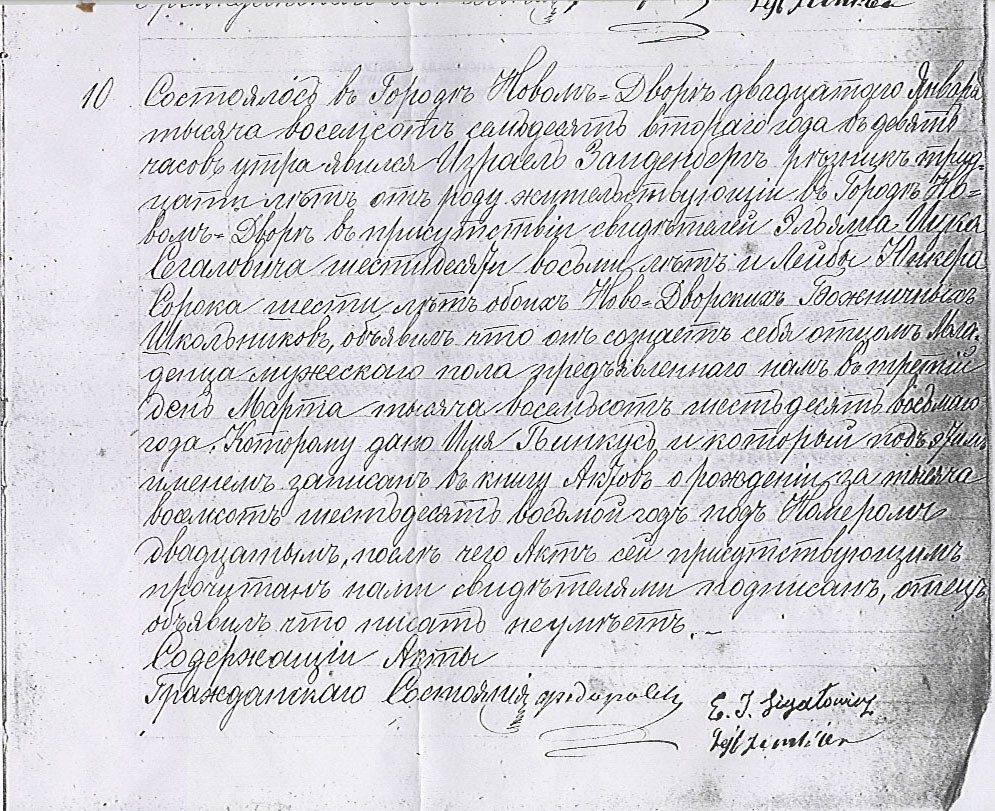 10 Состоялось въ Городѣ Новомъ=Дворѣ двадцатого Января
тысяча восемсотъ семьдесятъ втораго года въ девять
часовъ утра явился Израель Зайденбергъ рѣзникъ трид-
цати лѣтъ отъ роду жительствующій въ Городѣ Но=
вомъ=Дворѣ въ присутствіи свидѣтелей
Сегаловича шестидесяти восьми лѣтъ и Лейбы
Сорока шести лѣтъ обоихъ Ново=Дворскихъ Божничныхъ
Школьниковъ, объявилъ что онъ сознаетъ себя отцомъ Мла-
денца мужескаго пола предъявленнаго намъ въ третій
день Марта тысяча восемьсотъ шестьдесятъ восьмаго
года. Которому дано Имя Пинкусъ и который подъ этимъ
именемъ записанъ въ книгу Актовъ о рожденіи за тысяча
восемсотъ шестьдесятъ восьмой годъ подъ Номеромъ
двадцатымъ, послѣ чего Актъ сей присутствующимъ
прочитанъ нами свидѣтелями подписанъ, отецъ
объявилъ что писать неумѣетъ. –
Содержащій Акты
Гражданскаго Состоянія
E. J. Sigałowicz
Lejb